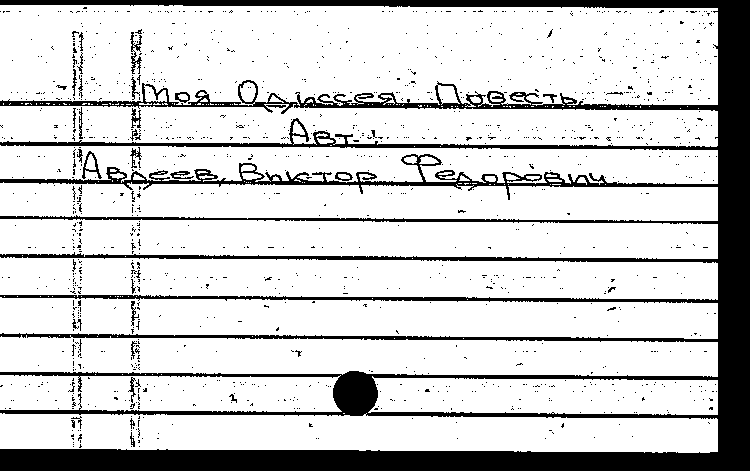 Моя Одиссея. Повесть.
Авт.:
Авдеев, Виктор Федорович